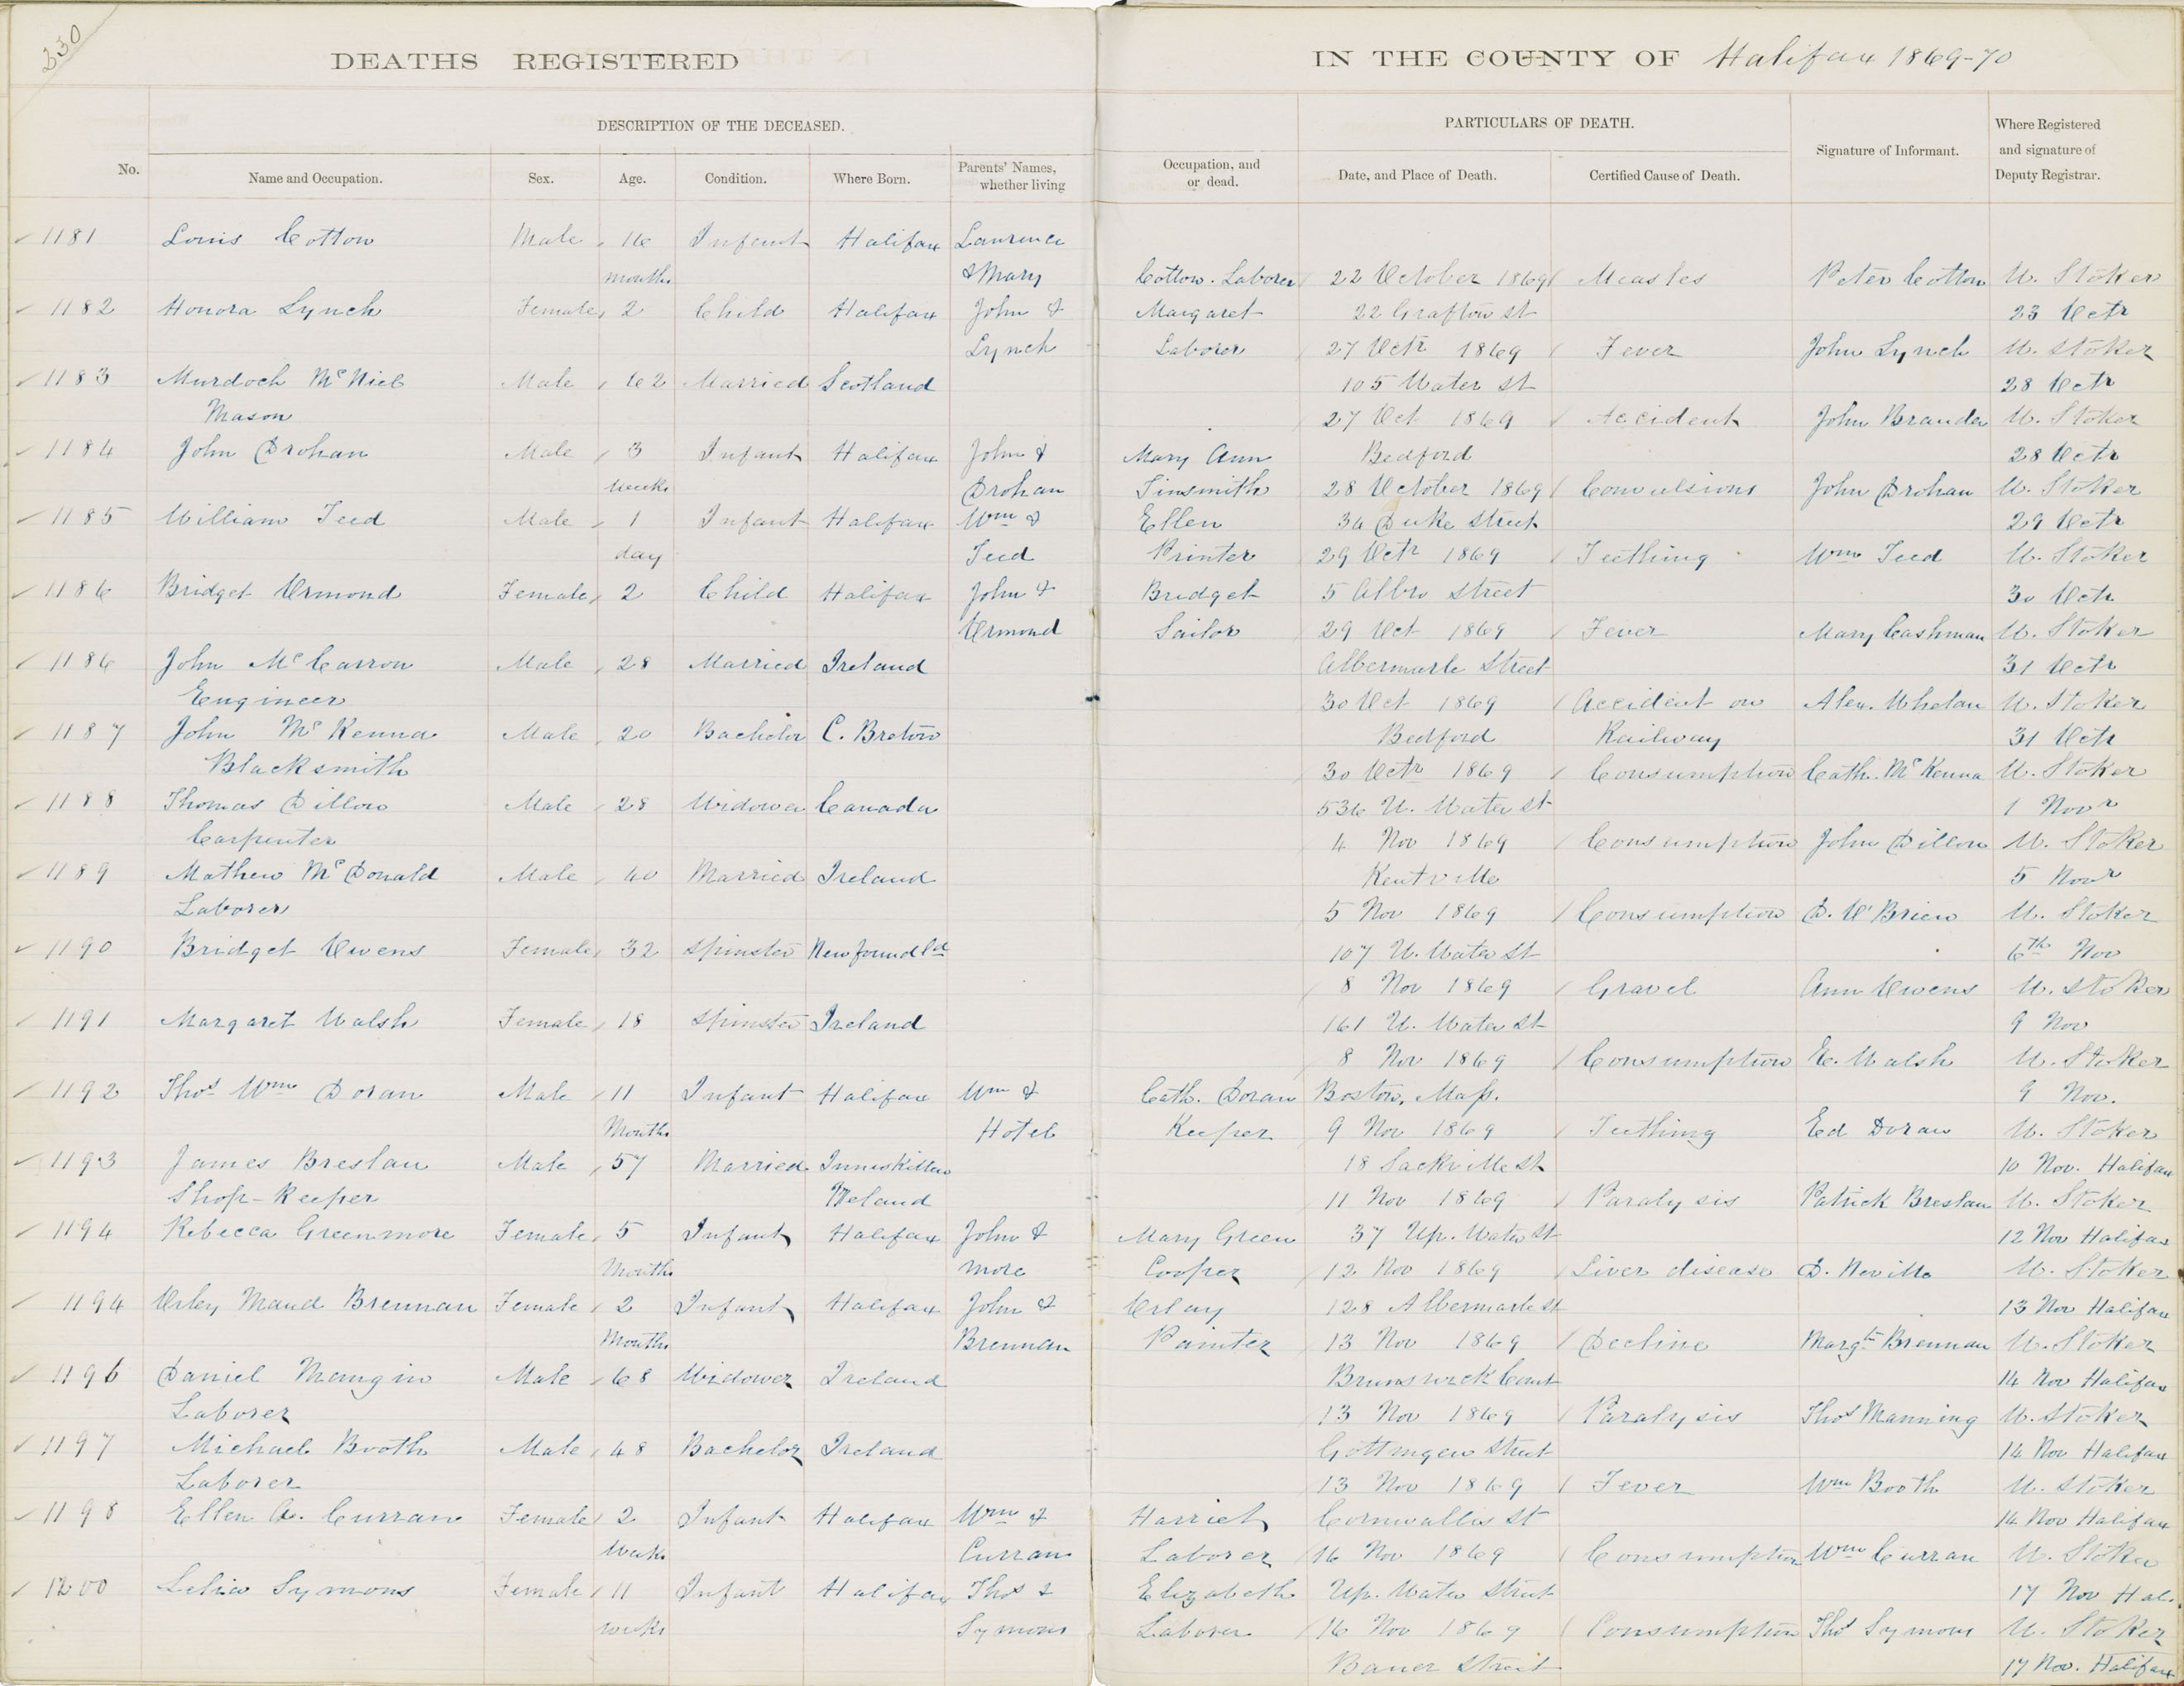 330
DEATHS REGISTERED IN THE COUNTY OF Halifax 1869-70
DESCRIPTION OF THE DECEASED. PARTICULARS OF DEATH.
No. Name and Occupation. Sex. Age. Condition. Where Born. Parents' Names, whether living Occupation, and or dead. Date, and Place of Death. Certified Cause of Death. Signature of Informant. Where Registered and signature of Deputy Registrar.
1181 Louis Cotton Male 16 Infant Halifax Laurence
months & Mary Cotton. Laborer 22 October 1869 Measles Peter Cotton W. Stoker
1182 Honora Lynch Female 2 Child Halifax John & Margaret 22 Grafton st 23 Octr
Lynch Laborer 27 Octr 1869 Fever John Lynch W. Stoker
1183 Murdoch McNiel Male 62 Married Scotland 105 Water st 28 Octr
Mason 27 Oct 1869 Accident John Brander W. Stoker
1184 John Drohan Male 3 Infant Halifax John & Mary Ann Bedford 28 Octr
weeks Drohan Tinsmith 28 October 1869 Convulsions John Drohan W. Stoker
1185 William Teed Male 1 Infant Halifax Wm & Ellen 34 Duke Street 29 Octr
day Teed Printer 29 Octr 1869 Teething Wm Teed W. Stoker
1186 Bridget Ormond Female 2 Child Halifax John & Bridget 5 Albro Street 30 Octr
Ormond Sailor 29 Oct 1869 Fever Mary Cashman W. Stoker
1186 John McCarron Male 28 Married Ireland Albermarle Street 31 Octr
Engineer 30 Oct 1869 Accident on Alex. Whelan W. Stoker
1187 John McKenna Male 20 Bachelor C. Breton Bedford Railway 31 Octr
Blacksmith 30 Octr 1869 Consumption Cath. McKenna W. Stoker
1188 Thomas Dillon Male 28 Widower Canada 536 U. Water st 1 Novr
Carpenter 4 Nov 1869 Consumption John Dillon W. Stoker
1189 Mathew McDonald Male 40 Married Ireland Kentville 5 Novr
Laborer 5 Nov 1869 Consumption D. O'Brien W. Stoker
1190 Bridget Owens Female 32 Spinster Newfoundld 107 U. Water st 6th Nov
8 Nov 1869 Gravel Ann Owens W. Stoker
1191 Margaret Walsh Female 18 Spinster Ireland 161 U. Water st 9 Nov
8 Nov 1869 Consumption E. Walsh W. Stoker
1192 Thos Wm Doran Male 11 Infant Halifax Wm & Cath. Doran Boston, Mass. 9 Nov.
Months Hotel Keeper 9 Nov 1869 Teething Ed Doran W. Stoker
1193 James Breslau Male 57 Married Inniskillen 18 Sackville st 10 Nov. Halifax
Shop-Keeper Ireland 11 Nov 1869 Paralysis Patrick Breslau W. Stoker
1194 Rebecca Greenmore Female 5 Infant Halifax John & Mary Green 37 Up. Water st 12 Nov Halifax
Months more Cooper 12 Nov 1869 Liver disease D. Neville W. Stoker
1194 Orley Maud Brennan Female 2 Infant Halifax John & Orlay 128 Albermarle st 13 Nov Halifax
Months Brennan Painter 13 Nov 1869 Decline Margt Brennan W. Stoker
1196 Daniel Mangin Male 68 Widower Ireland Brunswick Court 14 Nov Halifax
Laborer 13 Nov 1869 Paralysis Thos Manning W. Stoker
1197 Michael Booth Male 48 Bachelor Ireland Gottingen Street 14 Nov Halifax
Laborer 13 Nov 1869 Fever Wm Booth W. Stoker
1198 Ellen A. Curran Female 2 Infant Halifax Wm & Harriet Cornwallis st 14 Nov Halifax
Weeks Curran Laborer 16 Nov 1869 Consumption Wm Curran W. Stoker
1200 Lelia Symons Female 11 Infant Halifax Thos & Elizabeth Up. Water Street 17 Nov Hal.
weeks Symons Laborer 16 Nov 1869 Consumption Thos Symons W. Stoker
Bauer Street 17 Nov. Halifax